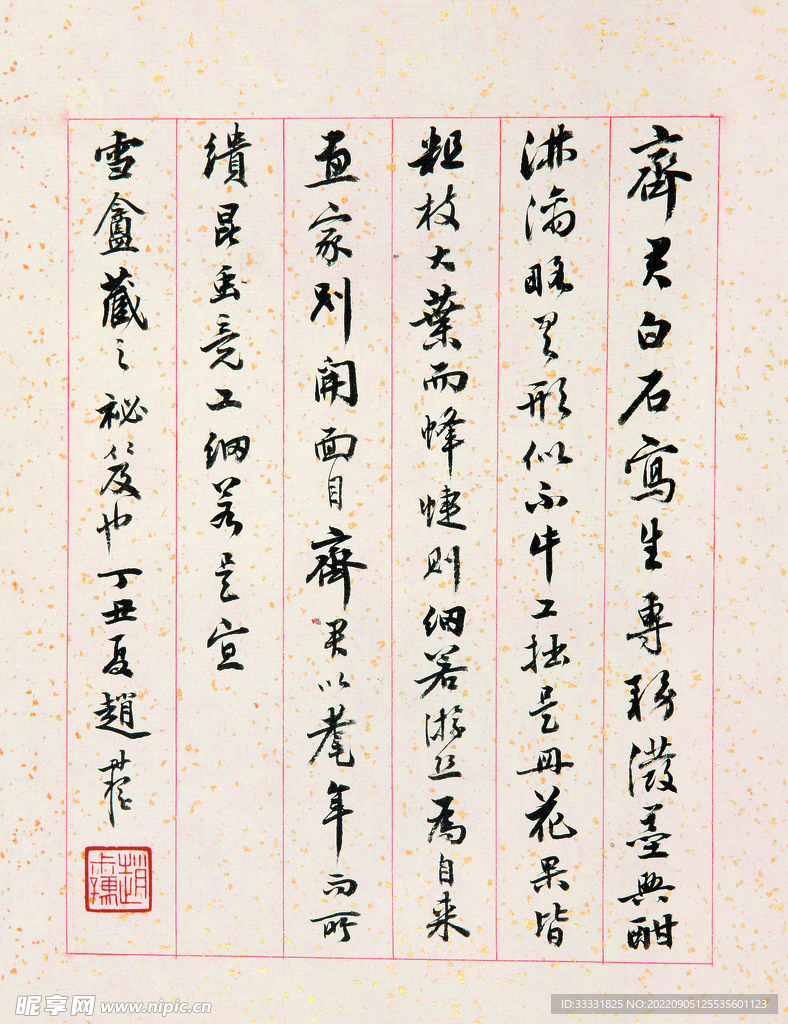 齊君白石寫生專務潑墨興酣
淋漓略具形似不計工拙是冊花果皆
粗枝大葉而蜂蜨則細若游絲為自來
畫家別開面目齊君以耄年而所
繢昆虫竟工細若是宜
雪盦藏之祕笈也丁丑夏趙
昵享网 www.nipic.cn
ID:33331825 NO:20220905125535601123